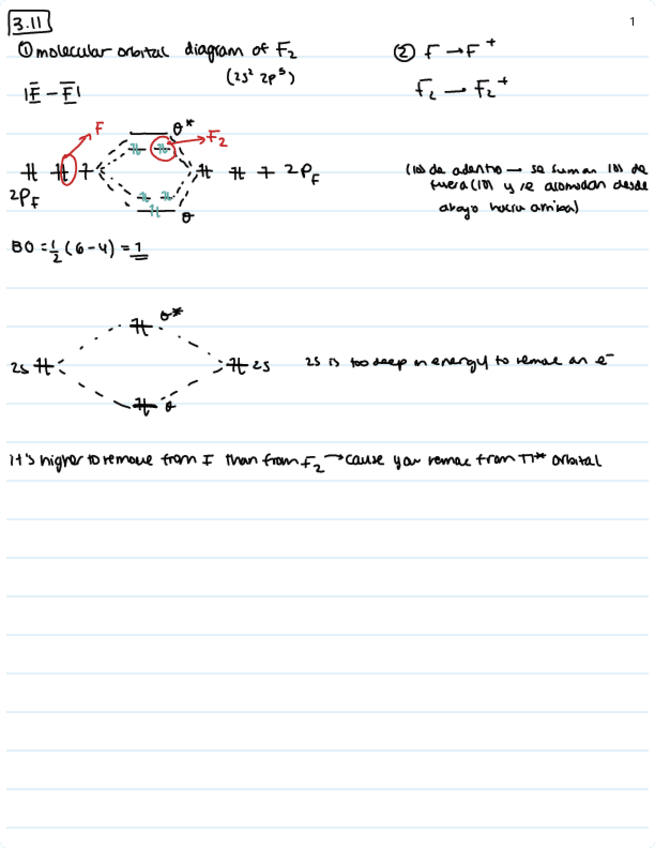 3.11
1
① molecular orbital diagram of F2
(2s² 2p⁵)
② F → F⁺
F2 → F2⁺
|F̅ - F̅|
F
σ*
F2
2PF
2PF
σ
(los de adentro → se suman los de
fuera (10) y se acomodan desde
abajo hacia arriba)
BO = 1/2 (6-4) = 1
σ*
2s
2s
2s is too deep in energy to remove an e⁻
σ
It's higher to remove from F than from F2 → cause you remove from π* orbital